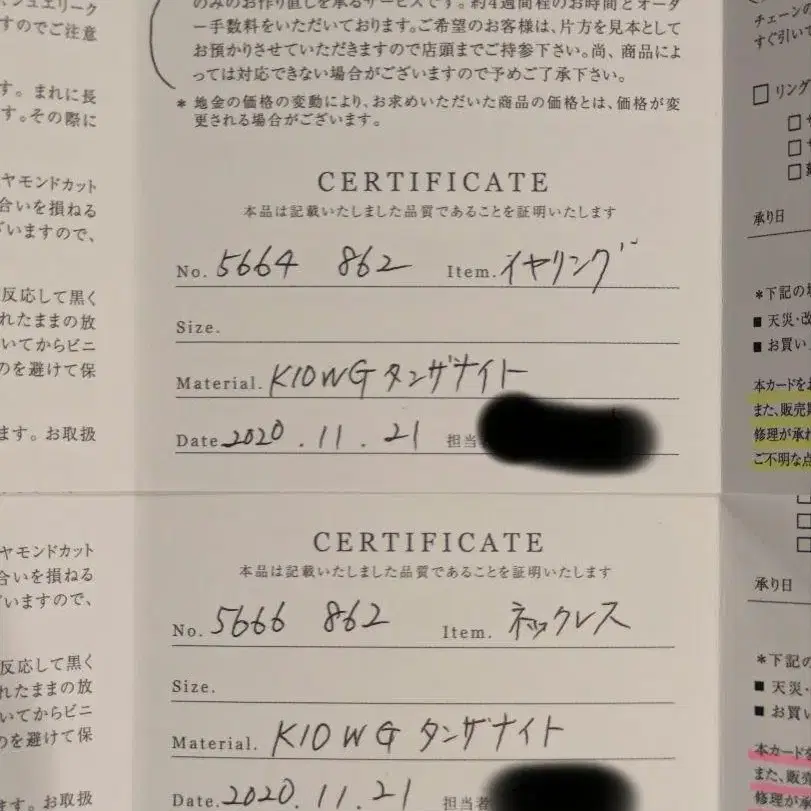 のみのお作り直しを承るサービスです。約4週間程のお時間とオーダ
ー手数料をいただいております。ご希望のお客様は、片方を見本として
お預かりさせていただきますので店頭までご持参下さい。尚、商品によ
っては対応できない場合がございますので予めご了承下さい。
* 地金の価格の変動により、お求めいただいた商品の価格とは、価格が変
更される場合がございます。
CERTIFICATE
本品は記載いたしました品質であることを証明いたします
No. 5664 862 Item. イヤリング
Size.
Material. K10WG タンザナイト
Date. 2020.11.21 担当
CERTIFICATE
本品は記載いたしました品質であることを証明いたします
No. 5666 862 Item. ネックレス
Size.
Material. K10WG タンザナイト
Date. 2020.11.21 担当者
すのでご注意
す。まれに長
す。その際に
ヤモンドカット
合いを損ねる
ざいますので、
反応して黒く
れたままの放
いてからビニ
のを避けて保
ます。お取扱
ヤモンドカット
合いを損ねる
ざいますので、
反応して黒く
れたままの放
いてからビニ
のを避けて保
ます。お取扱
チェーンの
すぐ引いて
□ リング
承り日
*下記の
■ 天災・改
■ お買い
本カードをお
また、販売
修理が承れ
ご不明な点
承り日
*下記の
■ 天災・
■ お買い
本カードを
また、販売
修理が承